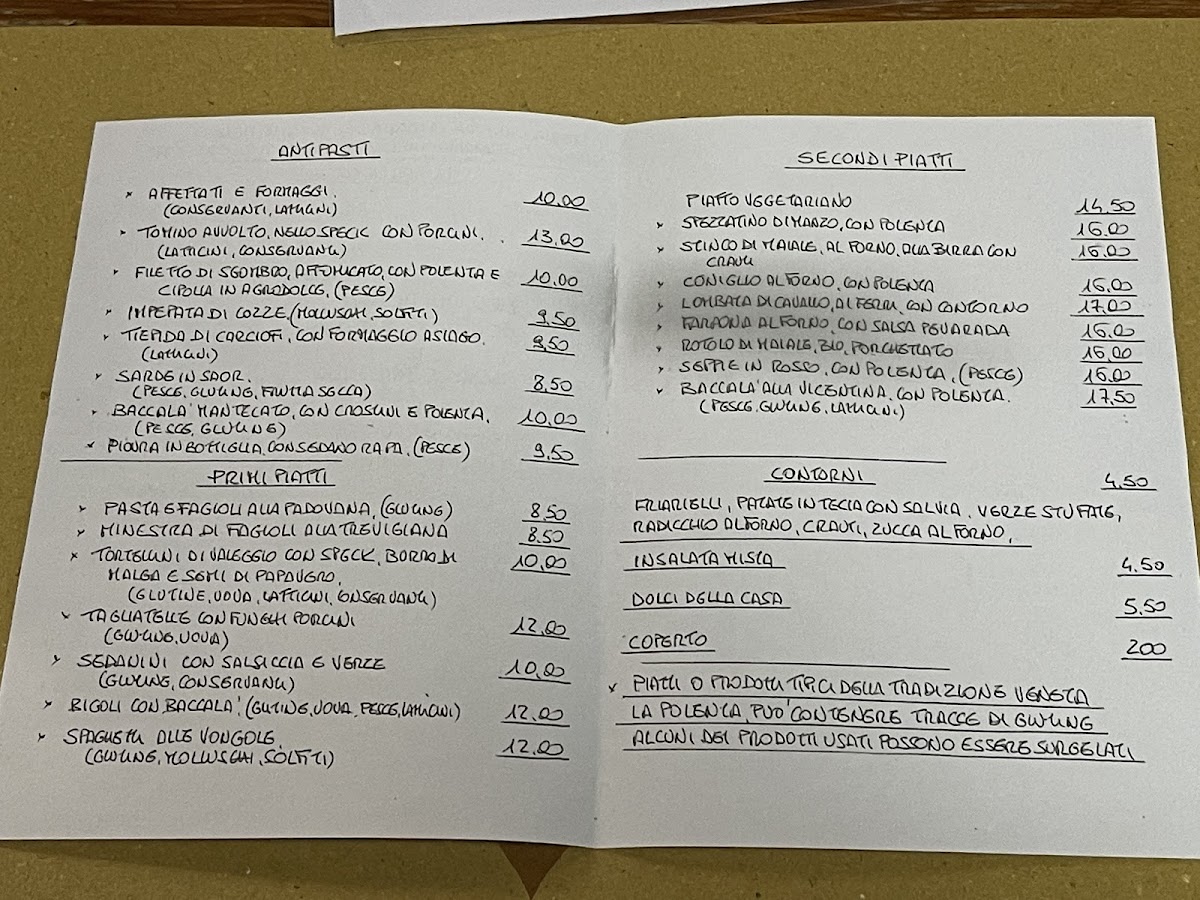 ANTIPASTI
× AFFETTATI E FORMAGGI. 10,00
(CONSERVANTI, LATTICINI)
× TOMINO AVVOLTO, NELLO SPECK CON PORCINI. 13,00
(LATTICINI, CONSERVANTI)
× FILETTO DI SGOMBRO, AFFUMICATO, CON POLENTA E 10,00
CIPOLLA IN AGRODOLCE, (PESCE)
× IMPEPATA DI COZZE, (MOLLUSCHI, SOLFITI) 9,50
× TIEPIDA DI CARCIOFI, CON FORMAGGIO ASIAGO. 9,50
(LATTICINI)
× SARDE IN SAOR. 8,50
(PESCE, GLUTINE, FRUTTA SECCA)
× BACCALA' MANTECATO, CON CROSTINI E POLENTA, 10,00
(PESCE, GLUTINE)
× PIOVRA IN BOTTIGLIA, CON SEDANO RAPA, (PESCE) 9,50
PRIMI PIATTI
× PASTA E FAGIOLI ALLA PADOVANA, (GLUTINE) 8,50
× MINESTRA DI FAGIOLI ALLA TREVIGIANA 8,50
× TORTELLINI DI VALEGGIO CON SPECK, BURRO DI 10,00
MALGA E SEMI DI PAPAVERO,
(GLUTINE, UOVA, LATTICINI, CONSERVANTI)
× TAGLIATELLE CON FUNGHI PORCINI 12,00
(GLUTINE, UOVA)
× SEDANINI CON SALSICCIA E VERZE 10,00
(GLUTINE, CONSERVANTI)
× BIGOLI CON BACCALA', (GLUTINE, UOVA, PESCE, LATTICINI) 12,00
× SPAGHETTI ALLE VONGOLE 12,00
(GLUTINE, MOLLUSCHI, SOLFITI)
SECONDI PIATTI
PIATTO VEGETARIANO 14,50
× SPEZZATINO DI MANZO, CON POLENTA 16,00
× STINCO DI MAIALE, AL FORNO, ALLA BIRRA CON 16,00
CRAUTI
× CONIGLIO AL FORNO, CON POLENTA 16,00
× LOMBATA DI CAVALLO, AI FERRI, CON CONTORNO 17,00
× FARAONA AL FORNO, CON SALSA PEVARADA 16,00
× ROTOLO DI MAIALE, BIO, PORCHETTATO 16,00
× SEPPIE IN ROSSO, CON POLENTA, (PESCE) 16,00
× BACCALA' ALLA VICENTINA, CON POLENTA. 17,50
(PESCE, GLUTINE, LATTICINI)
CONTORNI 4,50
FRIARIELLI, PATATE IN TECIA CON SALVIA, VERZE STUFATE,
RADICCHIO AL FORNO, CRAUTI, ZUCCA AL FORNO,
INSALATA MISTA 4,50
DOLCI DELLA CASA 5,50
COPERTO 200
× PIATTI O PRODOTTI TIPICI DELLA TRADIZIONE VENETA
LA POLENTA, PUO' CONTENERE TRACCE DI GLUTINE
ALCUNI DEI PRODOTTI USATI POSSONO ESSERE SURGELATI